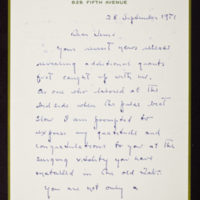 828 FIFTH AVENUE
28 September 1951
Dear
Your recent news release
revealing additional grants
just caught up with me.
As one who labored at the
bedside when the pulse beat
slow I am prompted to
express my gratitude and
congratulations to you at the
surging vitality you have
instilled in the old
You are not only a